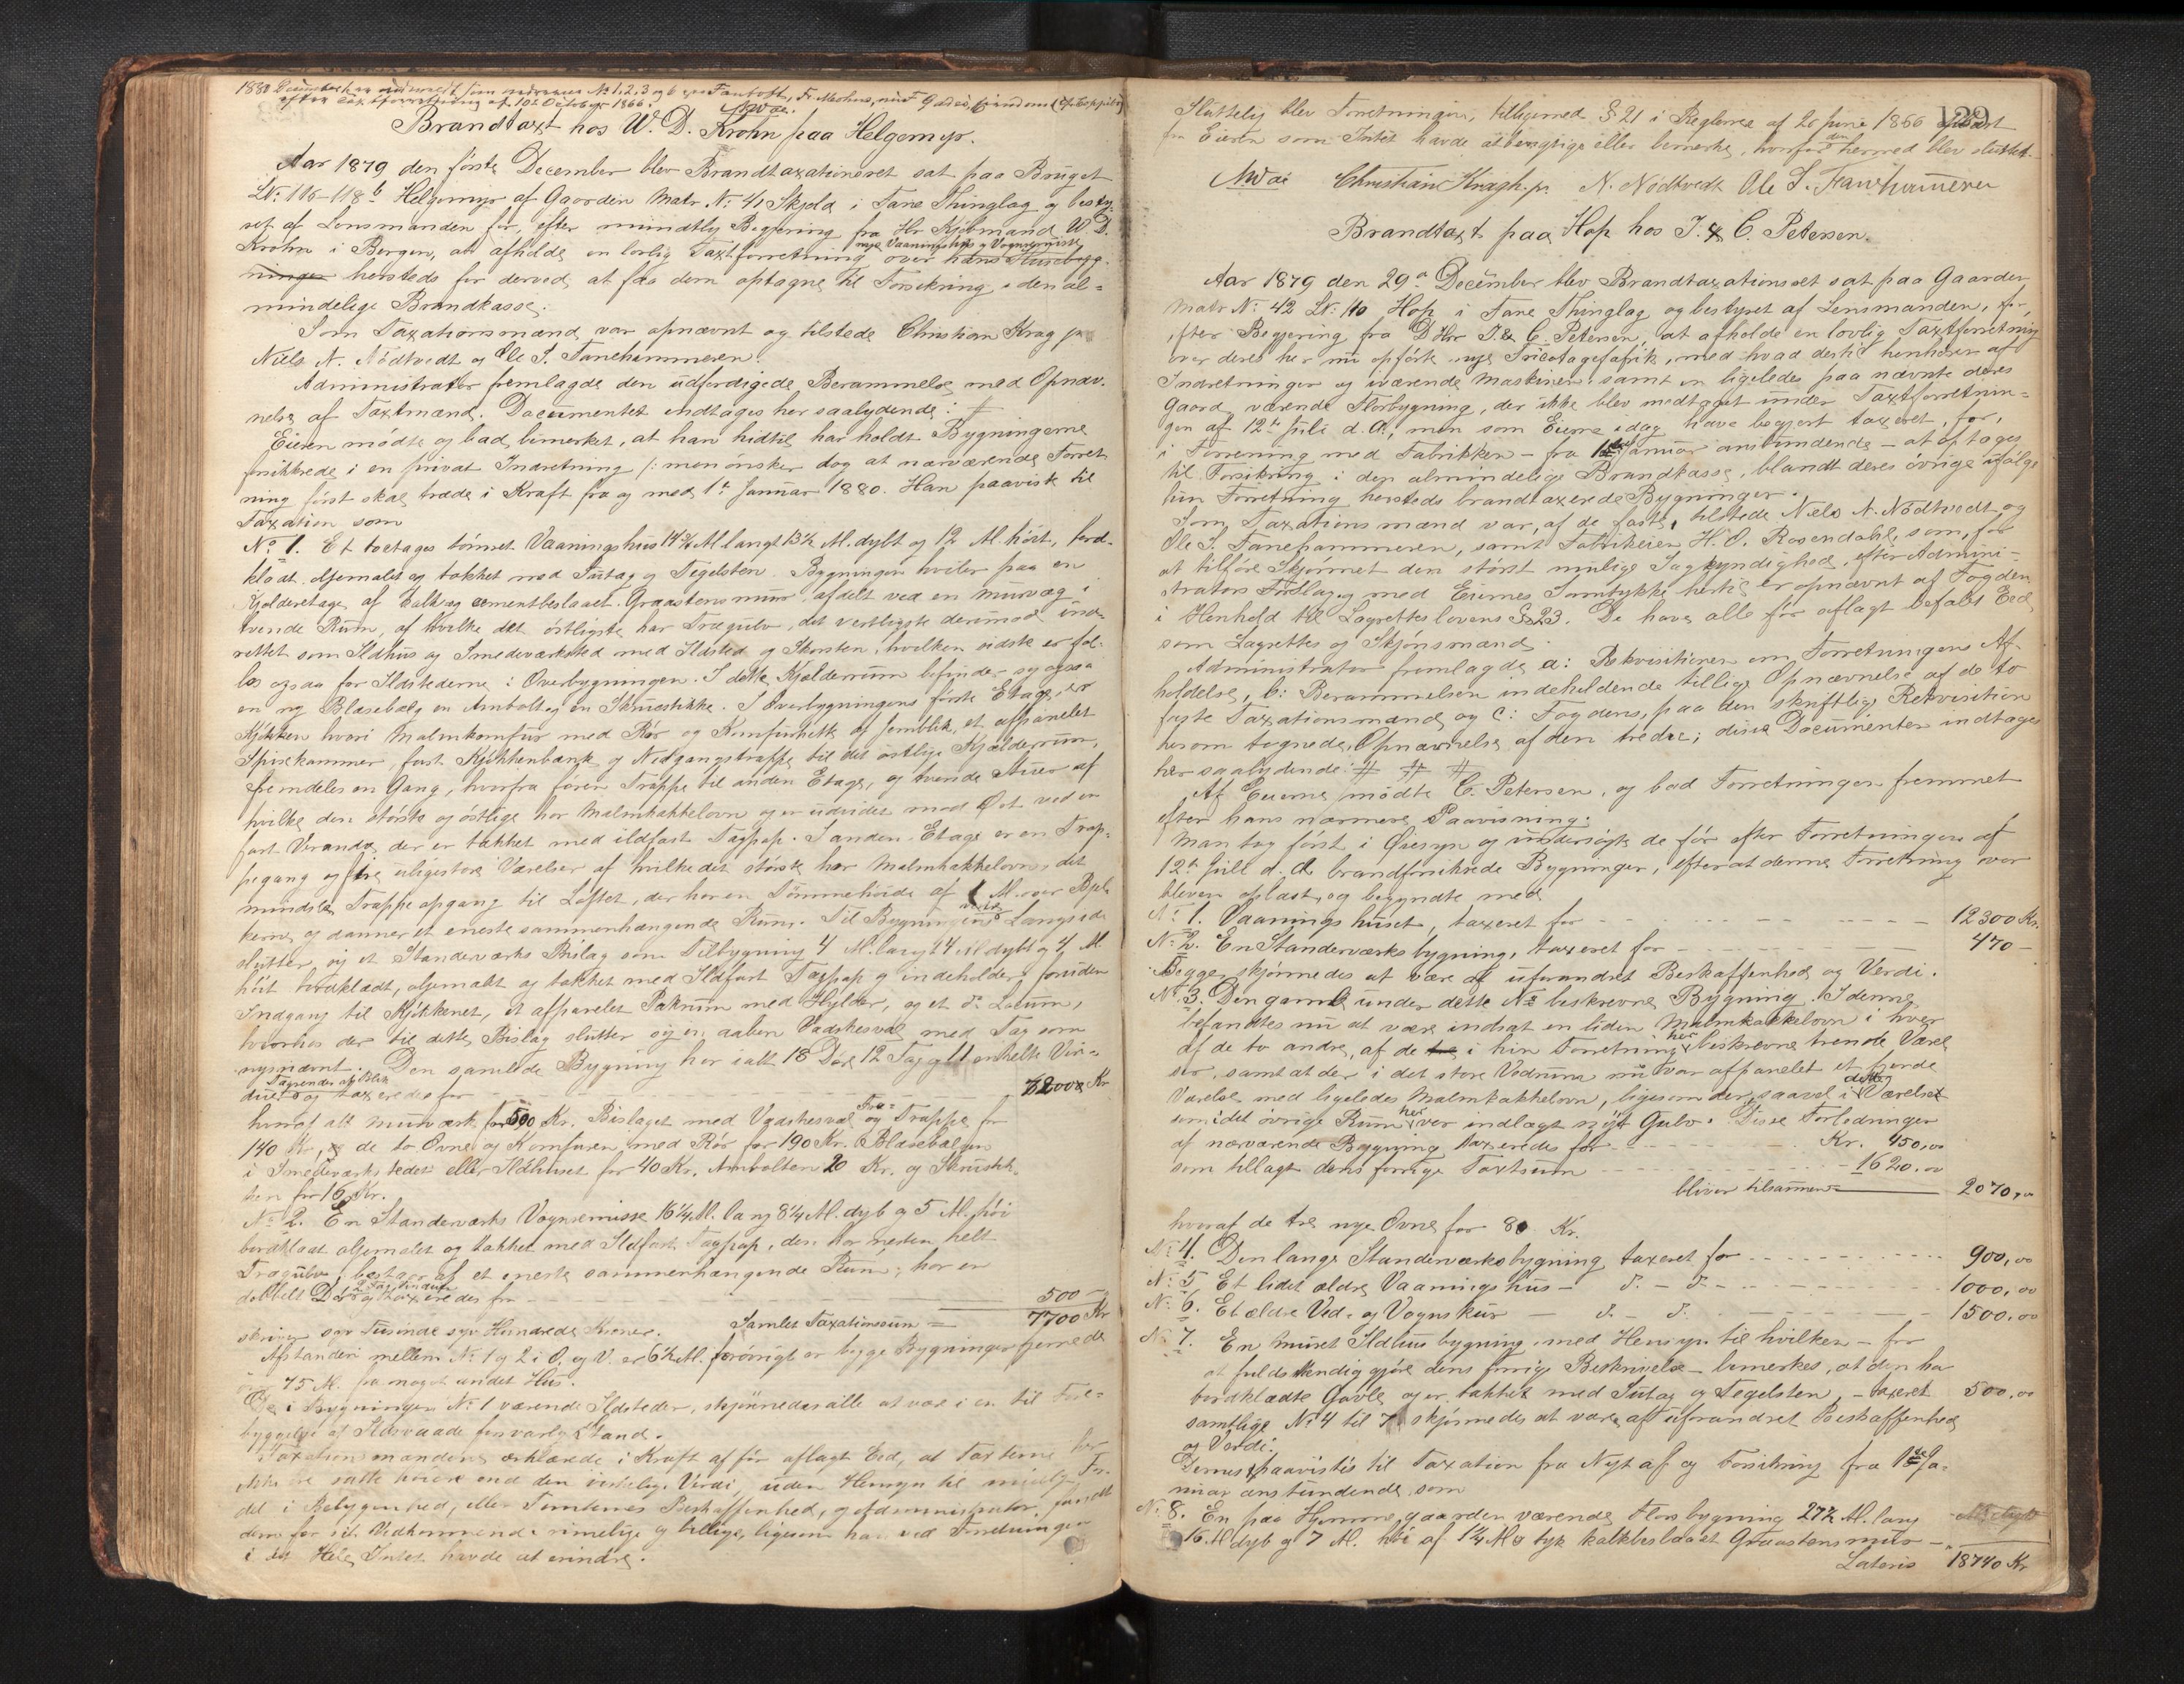 Brandtaxt hos W. D. Krohn paa Helgemyr.
Aar 1879 den første December blev Brandtaxationsret sat paa Bruget
LNo 116-118b Helgemyr af Gaarden Matr No 41 Skjold i Fane Thinglag og besty-
ret af Lensmanden for, efter mundtlig Begjering fra Hr Kjøbmand W. D.
Krohn i Bergen, at afholde en lovlig Taxtforretning over hans Huusbyg-
nye Vaaningshus og Vognremisse
ninger hersteds for derved at faa dem optagne til Forsikring i den al-
mindelige Brandkasse.
Som Taxationsmænd var opnævnt og tilstede Christian Krag jr
Niels N. Nödtvedt og Ole S. Fanehammeren.
Administrator fremlagde den udferdigede Berammelse med Opnæv-
nelse af Taxtmænd. Documentet indtages her saalydende: #
Eieren mödte og bad bemerket, at han hidtil har holdt Bygningerne
forsikkrede i en privat Indretning /: men ønsker dog at nærværende Forret
ning først skal træde i Kraft fra og med 1te Januar 1880. Han paaviste til
Taxation som
No 1. Et toetages tömret Vaaningshuus 14¾ Al. langt 13½ Al. dybt og 12 Al. höit, bord-
klædt, oljemalet og tækket med Sutag og Tegelsten. Bygningen hviler paa en
Kjelderetage af kalk og cementbeslaaet Graastensmuur, afdelt ved en Murvæg i
tvende Rum, af hvilke det östligste har Trægulv, det vestligste derimod ind-
rettet som Ildhus og Smedeværksted med Ildsted og Skorsten, hvilken sidste er fæl-
les ogsaa for Ildstederne i Overbygningen. I dette Kjælderrum befinder sig ogsaa
en ny Blæsebælg en Ambolt og en Skruestikke. I Overbygningens förste Etage, er
Kjökken hvori Malmkomfur med Rör og Komfurhætte af Jernblik, et afpanelet
Spisekammer, fast Kjökkenbænk og Nedgangstrappe til det östlige Kjælderrum,
fremdeles en Gang, hvorfra förer Trappe til anden Etage, og tvende Stuer af
hvilke den störste og östlige har Malmkakkelovn og er udvidet mod Öst ved en
fast Veranda, der er tækket med ildfast Tagpap. I anden Etage er en Trap-
pegang og fire uligestore Værelser af hvilke det störste har Malmkakkelovn, det
mindste Trappeopgang til Loftet, der har en Tömmerhöide af 1 Al. over Bjel-
kerne og danner et eneste sammenhængende Rum. Til Bygningens vestre Langside
slutter sig et Standerværks Bislag som Tilbygning 4 Al. langt 4 Al. dybt og 4 Al.
höit bordklædt, oljemalt og tækket med Ildfast Tagpap og indeholder foruden
Indgang til Kjökkenet, et afpanelet Pakrum med Hylder, og et do Locum,
hvorhos der til dette Bislag slutter sig en aaben Vadskesval med Tag som
nysnævnt. Den samlede Bygning har ialt 18 Döre 12 Fag og 11 enkelte Vin-
Tagrender af Blik
duer og taxeredes for 7200 Kr
hvoraf alt Murværk for 500 Kr. Bislaget med Vadskesval og Træ-Trappe for
140 Kr, de to Ovne og Komfuren med Rör for 190 Kr. Blæsebælgen
i Smedeværkstedet eller Ildhuset for 40 Kr, Ambolten 20 Kr. og Skruestik-
ken for 16 Kr.
No 2. En Standerværks Vognremisse 16¼ Al. lang 8¼ Al. dyb og 5 Al. höi
bordklædt oljemalet og tækket med Ildfast Tagpap, den har næsten helt
Trægulv, bestaar af et eneste sammenhængende Rum, har en
dobbelt Dör 2 Fag Vinduer og taxeredes for 500 -
Samlet Taxationssum = 7700 Kr
skriver syv Tusinde syv Hundrede Kroner.
Afstanden mellem No 1 og 2 i Ö. og V. er 6½ Al. forövrigt er begge Bygninger fjernede
75 Al. fra noget andet Hus.
De i Bygningen No 1 værende Ildsteder, skjönnedes alle at være i en til Fore-
byggelse af Ildsvaade forsvarlig Stand.
Taxationsmændene erklærede i Kraft af før aflagt Eed, at Taxterne her
ikke ere satte höiere end den virkelige Verdi, uden Hensyn til mulig For-
del i Beliggenhed, eller Tomternes Beskaffenhed, og Administrator fandt
dem for sit Vedkommende rimelige og billige, ligesom han ved Forretningen
i det Hele Intet havde at erindre.
129
Sluttelig blev Forretningen, tilligemed § 21 i Reglerne af 26 Juni 1866 oplæst
for Eieren som Intet havde at bemerke, hvorfor den hermed blev sluttet.
Christian Kragh jr. N. Nödtvedt Ole S. Fanehammeren
Brandtaxt paa Hop hos J. & C. Petersen.
Aar 1879 den 29de December blev Brandtaxationsret sat paa Gaarden
Matr No 42 LNo 110 Hop i Fane Thinglag og bestyret af Lensmanden, for,
efter Begjering fra DHrr J. & C. Petersen, at afholde en lovlig Taxtforretning
over deres her nu opførte nye Tricotagefabrik, med hvad dertil henhörer af
Indretninger og iværende Maskiner, samt en ligeledes paa nævnte deres
Gaard værende Florbygning, der ikke blev medtaget under Taxtforretnin-
gen af 12te Juli d. A., men som Eierne idag have begjert taxeret, for,
i Forening med Fabrikken - fra 1ste Januar anstundende - at optages
til Forsikring i den almindelige Brandkasse, blandt deres övrige ifølge
hin Forretning hersteds brandtaxerede Bygninger.
Som Taxationsmænd var, af de faste, tilstede Niels N. Nödtvedt og
Ole S. Fanehammeren, samt Fabrikeier H. O. Rosendahl, som, for
at tilföre Skjönnet den störst mulige Sagkyndighed, efter Admini-
strators Forslag og med Eiernes Samtykke hertil er opnævnt af Fogden
i Henhold til Lagretteslovens § 23. De have alle før aflagt befalet Eed
som Lagrettes og Skjönsmænd.
Administrator fremlagde a: Rekvisitionen om Forretningens Af-
holdelse, b: Berammelsen indeholdende tillige Opnævnelse af de to
faste Taxationsmænd og c: Fogdens, paa den skriftlige Rekvisition
herom tegnede, Opnævnelse af den tredie; disse Documenter indtages
her saalydende: # # #
Af Eierne mödte C. Petersen, og bad Forretningen fremmet
efter hans nærmere Paavisning.
Man tog først i Øiesyn og undersögte de før efter Forretningen af
12te Juli d. A. brandforsikrede Bygninger, efterat denne Forretning var
bleven oplæst, og begyndte med
No 1. Vaaningshuset, taxeret for 12300 Kr.
No 2. En Standerværksbygning, taxeret for 470 -
Begge skjönnedes at være af uforandret Beskaffenhed og Verdi.
No 3. Den gamle under dette No beskrevne Bygning. I denne
befandtes nu at være indsat en liden Malmkakkelovn i hver
af de to andre, af de i hin Forretning her beskrevne trende Værel
ser, samt at der i det store Vedrum nu var afpanelet et fjerde
Værelse med ligeledes Malmkakkelovn, ligesom der, saavel i dette Værelse
som i det övrige Rum her var indlagt nyt Gulv. Disse Forbedringer
af nærværende Bygning taxeredes for Kr. 450,00
som tillagt dens forrige Taxtsum 1620,00
bliver tilsammen 2070,00
hvoraf de tre nye Ovne for 80 Kr.
No 4. Den lange Standerværksbygning taxeret for 900,00
No 5 Et lidet ældre Vaaningshus - d. - d. - 1000,00
No 6. Et ældre Ved- og Vognskur - d. - d. 1500,00
No 7. En muret Ildhusbygning, med Hensyn til hvilken - for
at fuldstændiggjöre dens forrige Beskrivelse - bemerkes, at den har
bordklædte Gavle og er tækket med Sutag og Tegelsten, - taxeret 500,00
samtlige No 4 til 7 skjönnedes at være af uforandret Beskaffenhed
og Verdi.
Dernæst paavistes til Taxation fra Nyt af og Forsikring fra 1ste Ja-
nuar anstundende, som
No 8. En paa Hjemmegaarden værende Florbygning 27½ Al. lang
16 Al dyb og 7 Al. höi af 1¼ Al. tyk kalkbeslaaet Graastensmur -
Lateris 18740 Kr